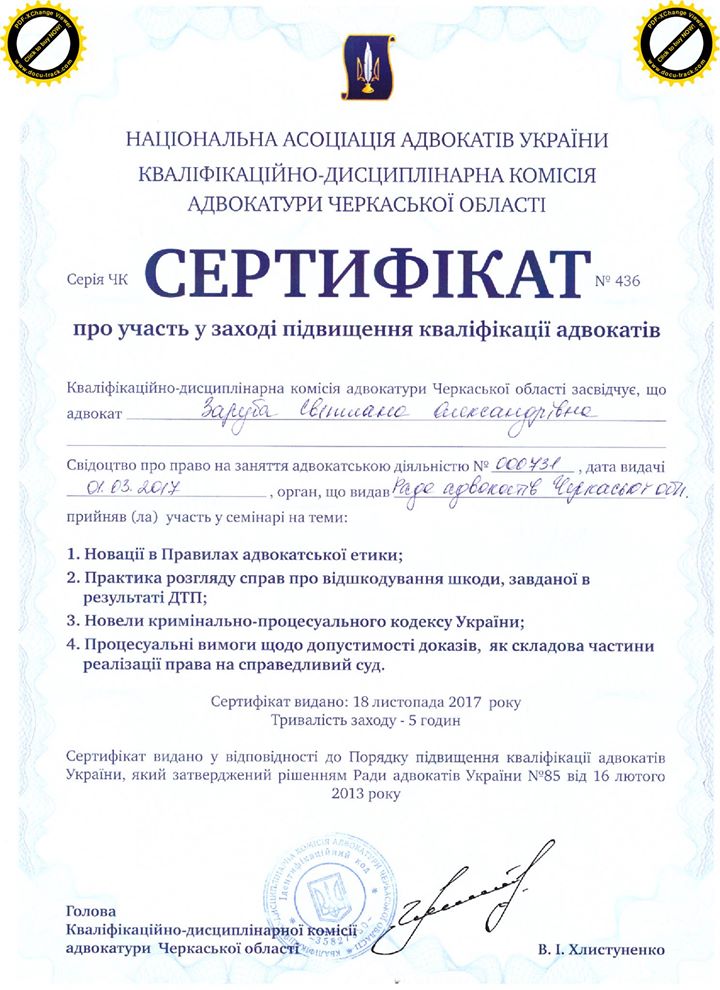 PDF-XChange Viewer
Click to buy NOW!
www.docu-track.com
PDF-XChange Viewer
Click to buy NOW!
www.docu-track.com
НАЦІОНАЛЬНА АСОЦІАЦІЯ АДВОКАТІВ УКРАЇНИ
КВАЛІФІКАЦІЙНО-ДИСЦИПЛІНАРНА КОМІСІЯ
АДВОКАТУРИ ЧЕРКАСЬКОЇ ОБЛАСТІ
Серія ЧК СЕРТИФІКАТ № 436
про участь у заході підвищення кваліфікації адвокатів
Кваліфікаційно-дисциплінарна комісія адвокатури Черкаської області засвідчує, що
адвокат Заруба Світлана Олександрівна
Свідоцтво про право на заняття адвокатською діяльністю № 000731 , дата видачі
01.03.2017 , орган, що видав Рада адвокатів Черкаської обл.
прийняв (ла) участь у семінарі на теми:
1. Новації в Правилах адвокатської етики;
2. Практика розгляду справ про відшкодування шкоди, завданої в
результаті ДТП;
3. Новели кримінально-процесуального кодексу України;
4. Процесуальні вимоги щодо допустимості доказів, як складова частини
реалізації права на справедливий суд.
Сертифікат видано: 18 листопада 2017 року
Тривалість заходу - 5 годин
Сертифікат видано у відповідності до Порядку підвищення кваліфікації адвокатів
України, який затверджений рішенням Ради адвокатів України №85 від 16 лютого
2013 року
Ідентифікаційний код
Голова
Кваліфікаційно-дисциплінарної комісії
адвокатури Черкаської області
В. І. Хлистуненко